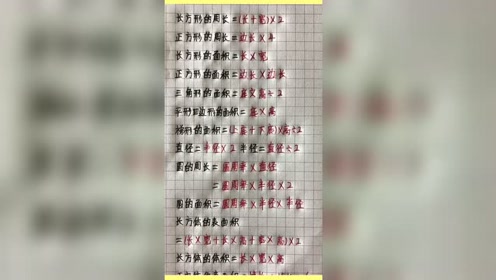 长方形的周长=(长+宽)×2
正方形的周长=边长×4
长方形的面积=长×宽
正方形的面积=边长×边长
三角形的面积=底×高÷2
平行四边形的面积=底×高
梯形的面积=(上底+下底)×高÷2
直径=半径×2 半径=直径÷2
圆的周长=圆周率×直径
=圆周率×半径×2
圆的面积=圆周率×半径×半径
长方体的表面积
=(长×宽+长×高+宽×高)×2
长方体的体积=长×宽×高